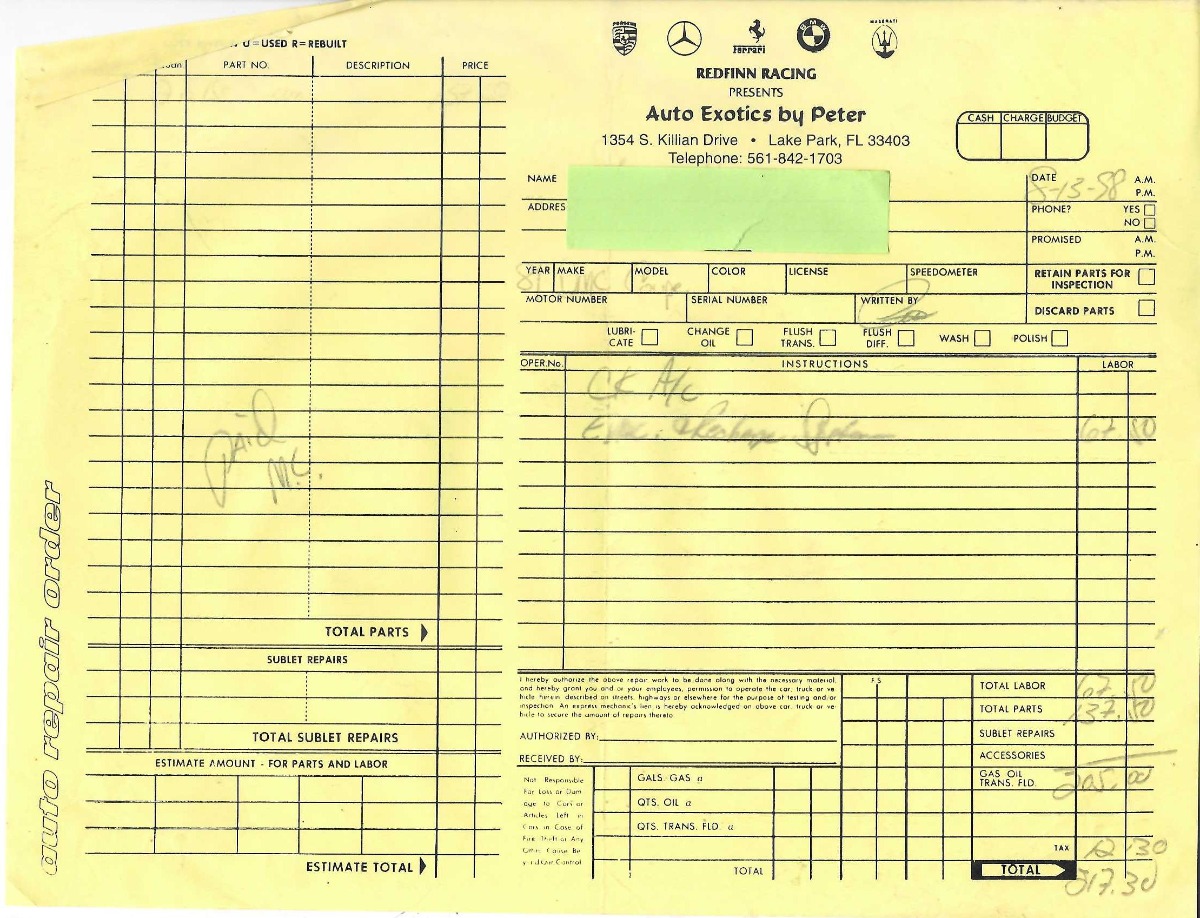 U=USED R=REBUILT
PART NO. DESCRIPTION PRICE
TOTAL PARTS
SUBLET REPAIRS
TOTAL SUBLET REPAIRS
ESTIMATE AMOUNT - FOR PARTS AND LABOR
ESTIMATE TOTAL
auto repair order
PAID
M.C.
PORSCHE
Ferrari
BMW
MASERATI
REDFINN RACING
PRESENTS
Auto Exotics by Peter
1354 S. Killian Drive • Lake Park, FL 33403
Telephone: 561-842-1703
CASH CHARGE BUDGET
NAME
DATE 8-13-98 A.M.
P.M.
ADDRES
PHONE? YES
NO
PROMISED A.M.
P.M.
YEAR MAKE MODEL COLOR LICENSE SPEEDOMETER
81 Coupe
RETAIN PARTS FOR
INSPECTION
MOTOR NUMBER SERIAL NUMBER WRITTEN BY
DISCARD PARTS
LUBRI-
CATE
CHANGE
OIL
FLUSH
TRANS.
FLUSH
DIFF.
WASH
POLISH
OPER.No. INSTRUCTIONS LABOR
CK A/C
67.50
I hereby authorize the above repair work to be done along with the necessary material,
and hereby grant you and or your employees, permission to operate the car, truck or ve-
hicle herein described on streets, highways or elsewhere for the purpose of testing and/or
inspection. An express mechanic's lien is hereby acknowledged on above car, truck or ve-
hicle to secure the amount of repairs thereto.
AUTHORIZED BY:
RECEIVED BY:
Not Responsible
For Loss or Dam-
age to Cars or
Articles Left in
Cars in Case of
Fire Theft or Any
Other Cause Be-
yond Our Control
GALS. GAS @
QTS. OIL @
QTS. TRANS. FLD @
TOTAL
TOTAL LABOR 67.50
TOTAL PARTS 137.50
SUBLET REPAIRS
ACCESSORIES
GAS OIL
TRANS. FLD. 205.00
TAX 12.30
TOTAL 217.30